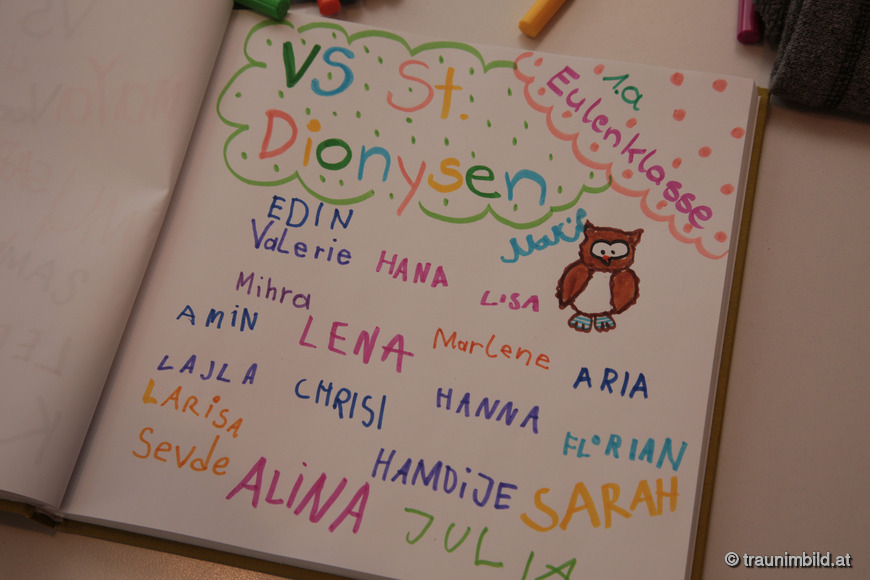 VS St.
Dionysen
1.a
Eulenklasse
EDIN
Valerie
HANA
Makif
Mihra
LiSA
AMiN
LENA
Marlene
ARIA
LAJLA
CHRISI
HANNA
LARiSA
FLORIAN
Sevde
ALiNA
HAMDiJE
SARAH
JULIA
© traunimbild.at